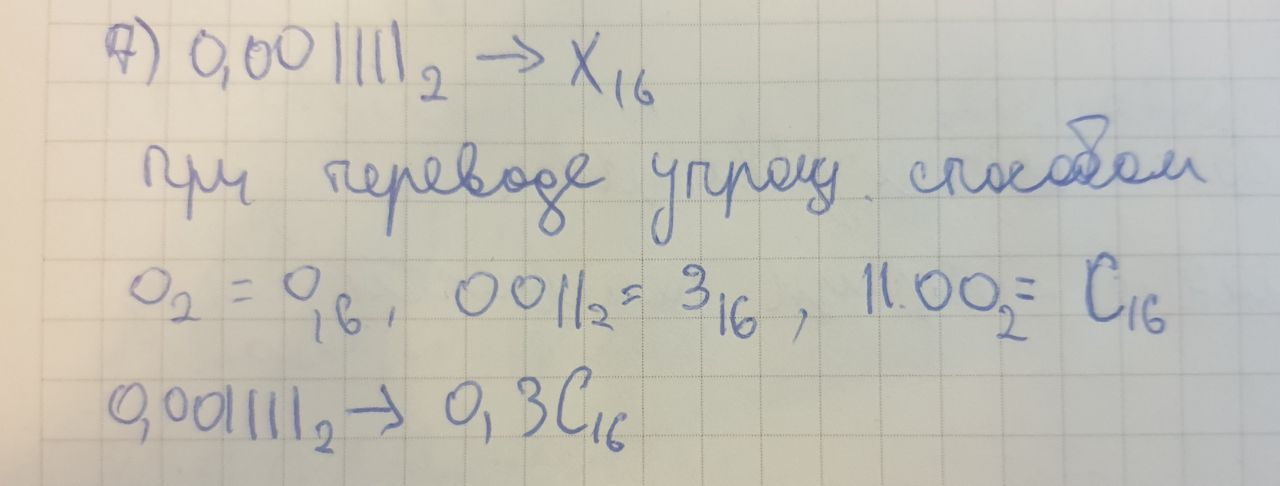 7) 0,001111₂ → X₁₆
При переводе упрощ. способом
0₂ = 0₁₆, 0011₂ = 3₁₆, 11.00₂ = C₁₆
0,001111₂ → 0,3C₁₆